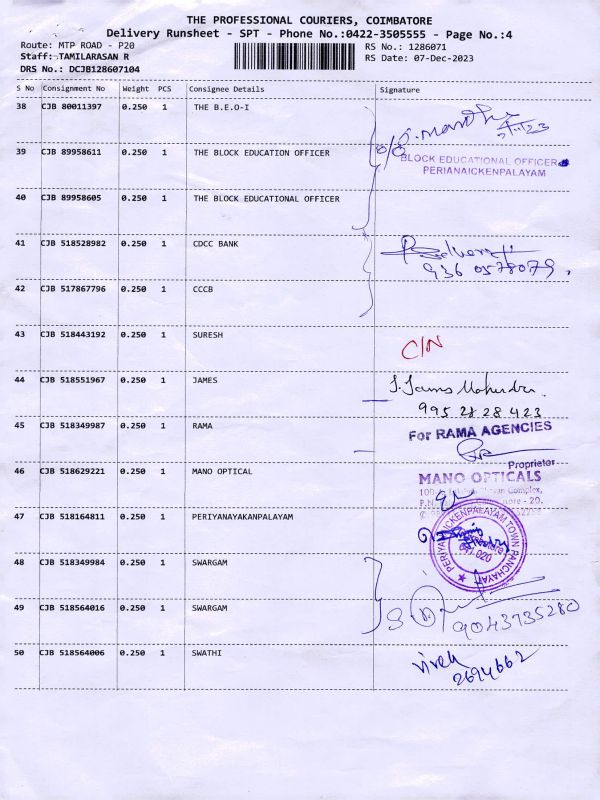 THE PROFESSIONAL COURIERS, COIMBATORE
Delivery Runsheet - SPT - Phone No.:0422-3505555 - Page No.:4
Route: MTP ROAD - P20
RS No.: 1286071
Staff: TAMILARASAN R
RS Date: 07-Dec-2023
DRS No.: DCJB128607104
S No Consignment No Weight PCS Consignee Details Signature
38 CJB 80011397 0.250 1 THE B.E.O-I
39 CJB 89958611 0.250 1 THE BLOCK EDUCATION OFFICER
BLOCK EDUCATIONAL OFFICER
PERIANAICKENPALAYAM
40 CJB 89958605 0.250 1 THE BLOCK EDUCATIONAL OFFICER
41 CJB 518528982 0.250 1 CDCC BANK
936 0578079
42 CJB 517867796 0.250 1 CCCB
43 CJB 518443192 0.250 1 SURESH
C/N
44 CJB 518551967 0.250 1 JAMES
995 28 28 423
45 CJB 518349987 0.250 1 RAMA
For RAMA AGENCIES
Proprietor
46 CJB 518629221 0.250 1 MANO OPTICAL
MANO OPTICALS
Complex,
47 CJB 518164811 0.250 1 PERIYANAYAKANPALAYAM
PERIYANAICKENPALAYAM TOWN PANCHAYAT
48 CJB 518349984 0.250 1 SWARGAM
49 CJB 518564016 0.250 1 SWARGAM
9043735280
50 CJB 518564006 0.250 1 SWATHI
vivek
2694662